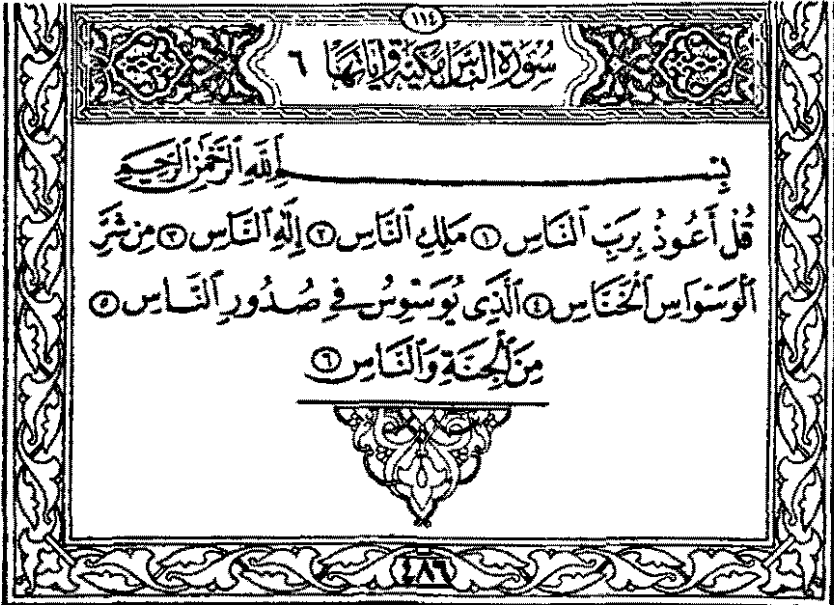 ١١٤
سُورَةُ النَّاسِ مَكِّيَّة وَآيَاتُهَا ٦
بِسْمِ اللَّهِ الرَّحْمَٰنِ الرَّحِيمِ
قُلْ أَعُوذُ بِرَبِّ النَّاسِ ١ مَلِكِ النَّاسِ ٢ إِلَٰهِ النَّاسِ ٣ مِن شَرِّ
الْوَسْوَاسِ الْخَنَّاسِ ٤ الَّذِى يُوَسْوِسُ فِى صُدُورِ النَّاسِ ٥
مِنَ الْجِنَّةِ وَالنَّاسِ ٦
٤٨٦